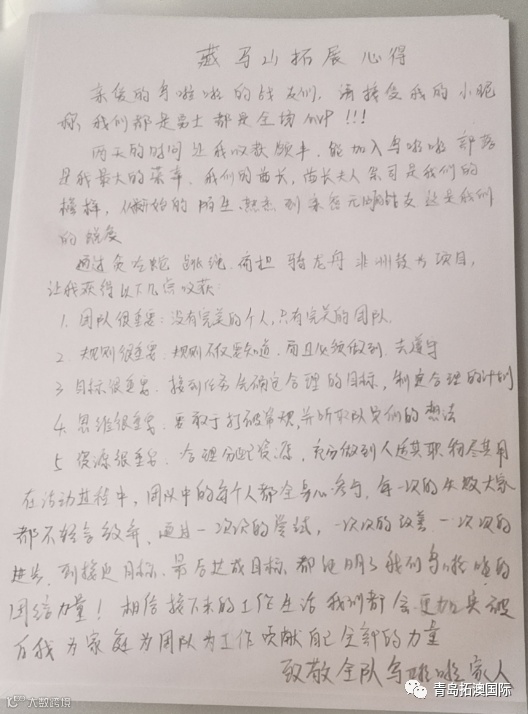 藏马山拓展心得
亲爱的乌啦啦的战友们，请接受我的小昵
称 我们都是勇士都是全场MVP!!!
两天的时间让我收获颇丰，能加入乌啦啦部落
是我最大的荣幸，我们的酋长，酋长夫人 公司是我们的
榜样，从开始的陌生 到亲密无间的战友 这是我们
的蜕变
通过 跳绳 骑龙舟 非洲鼓等项目，
让我获得以下几点收获：
1. 团队很重要：没有完美的个人，只有完美的团队
2. 规则很重要：规则不仅要知道，而且必须做到，去遵守
3. 目标很重要：接到任务先确定合理的目标，制定合理的计划
4. 思维很重要：要敢于打破常规，并听取队员们的想法
5. 资源很重要：合理分配资源，充分做到人适其职 物尽其用
在活动过程中，团队中的每个人都全身心参与，每一次的失败大家
都不轻言放弃，通过一次次的尝试，一次次的改善 一次次的
进步，到接近目标，最后达成目标，都证明了我们乌啦啦的
团结力量！相信接下来的工作生活 我们都会更加突破
自我 为家庭为团队为工作贡献自己全部的力量
致敬全队乌啦啦家人
大数跨境
青岛拓澳国际